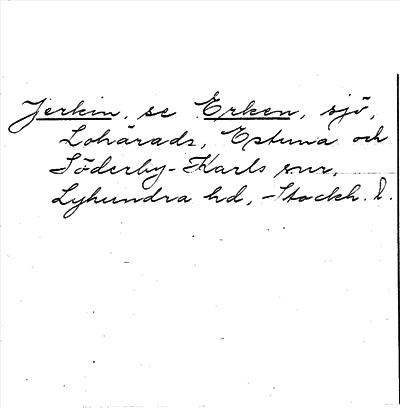 Jerkin, se Erken, sjö,
Lohärads, Estuna och
Söderby-Karls snr,
Lyhundra hd, Stockh. l.